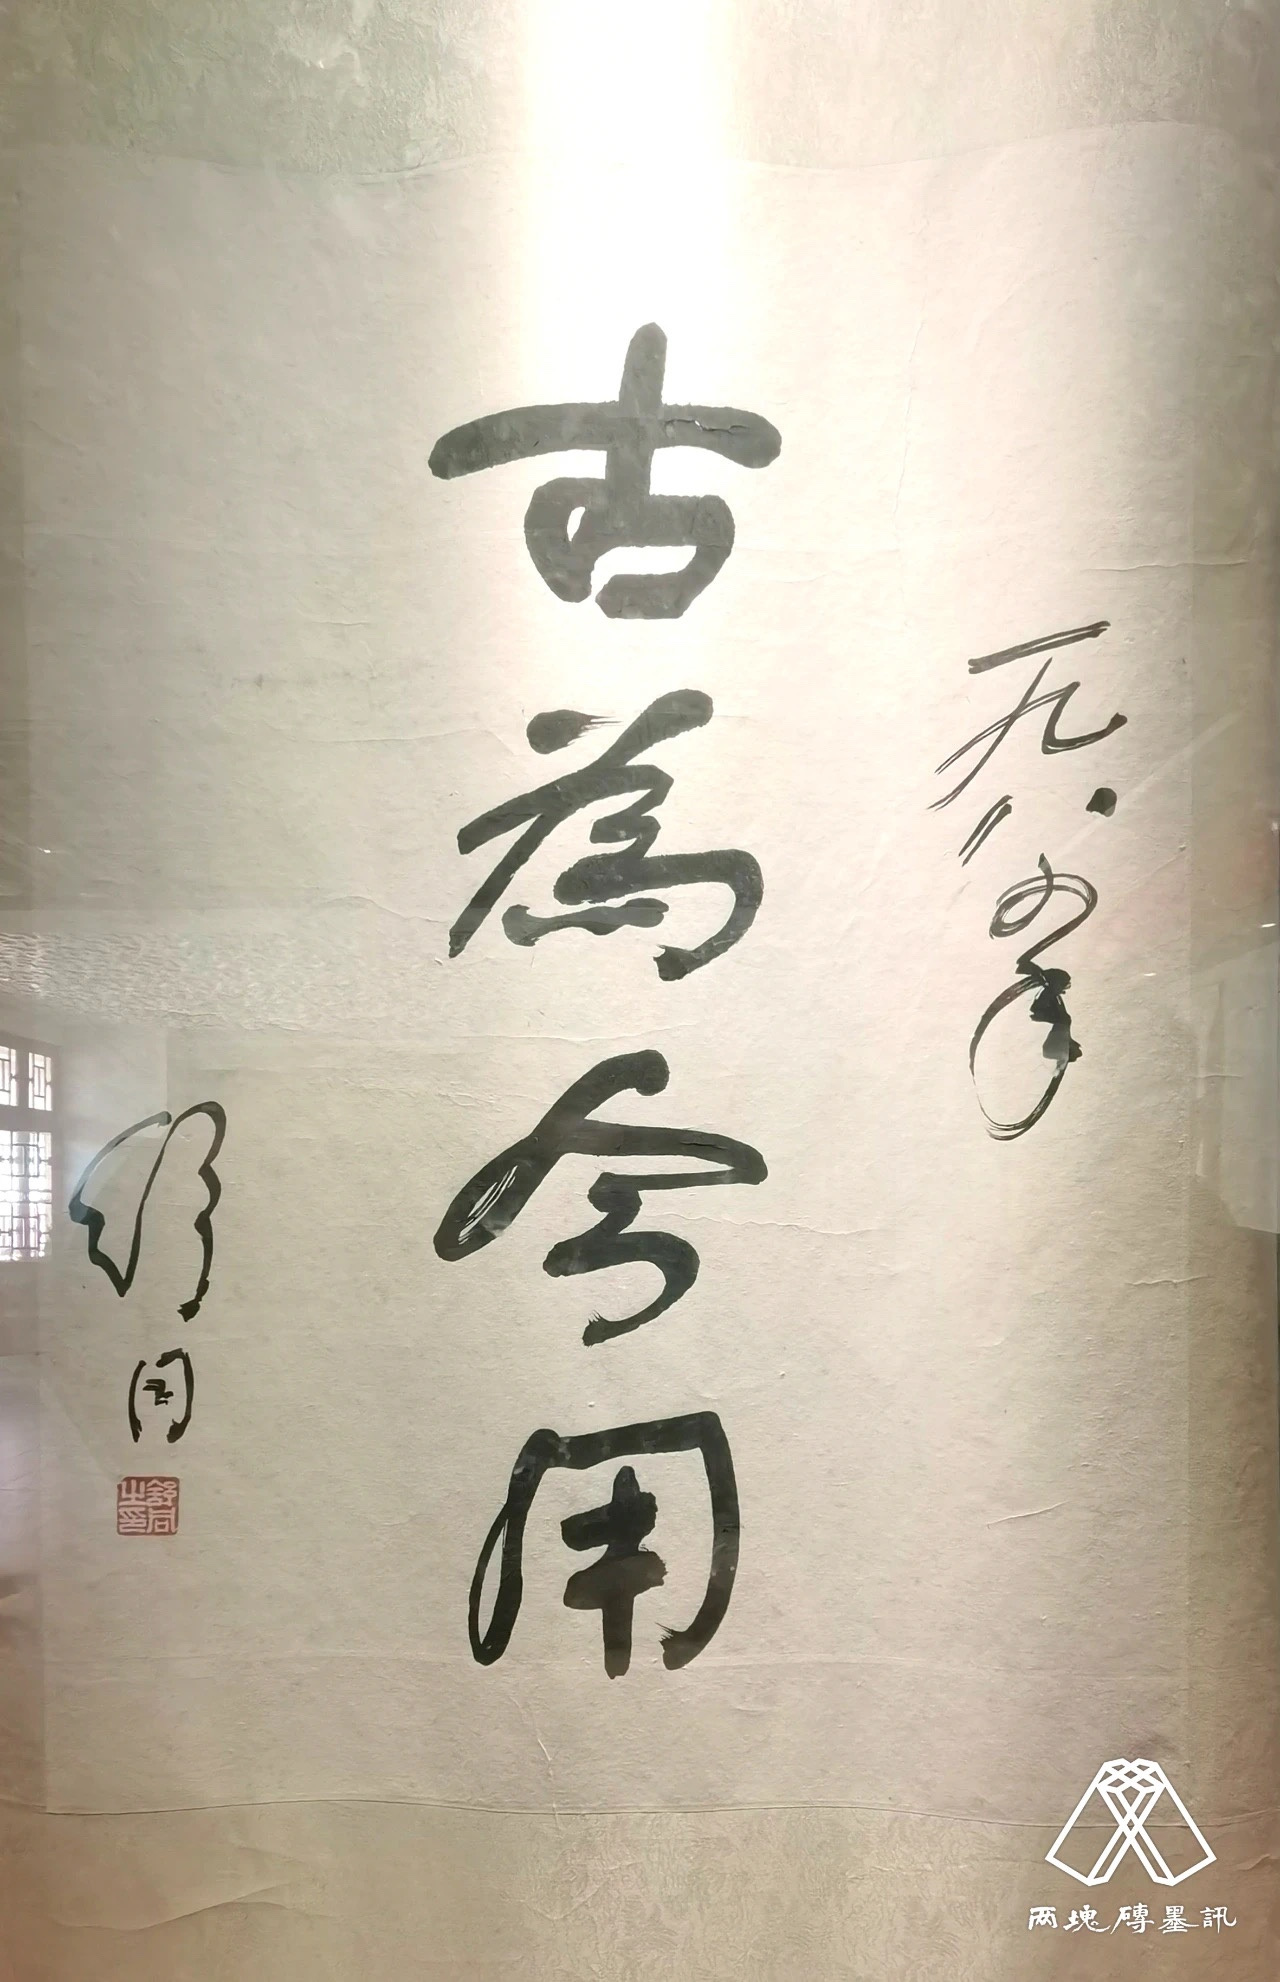 一九八四年
古為今用
舒同
舒同之印
两塊磚墨訊